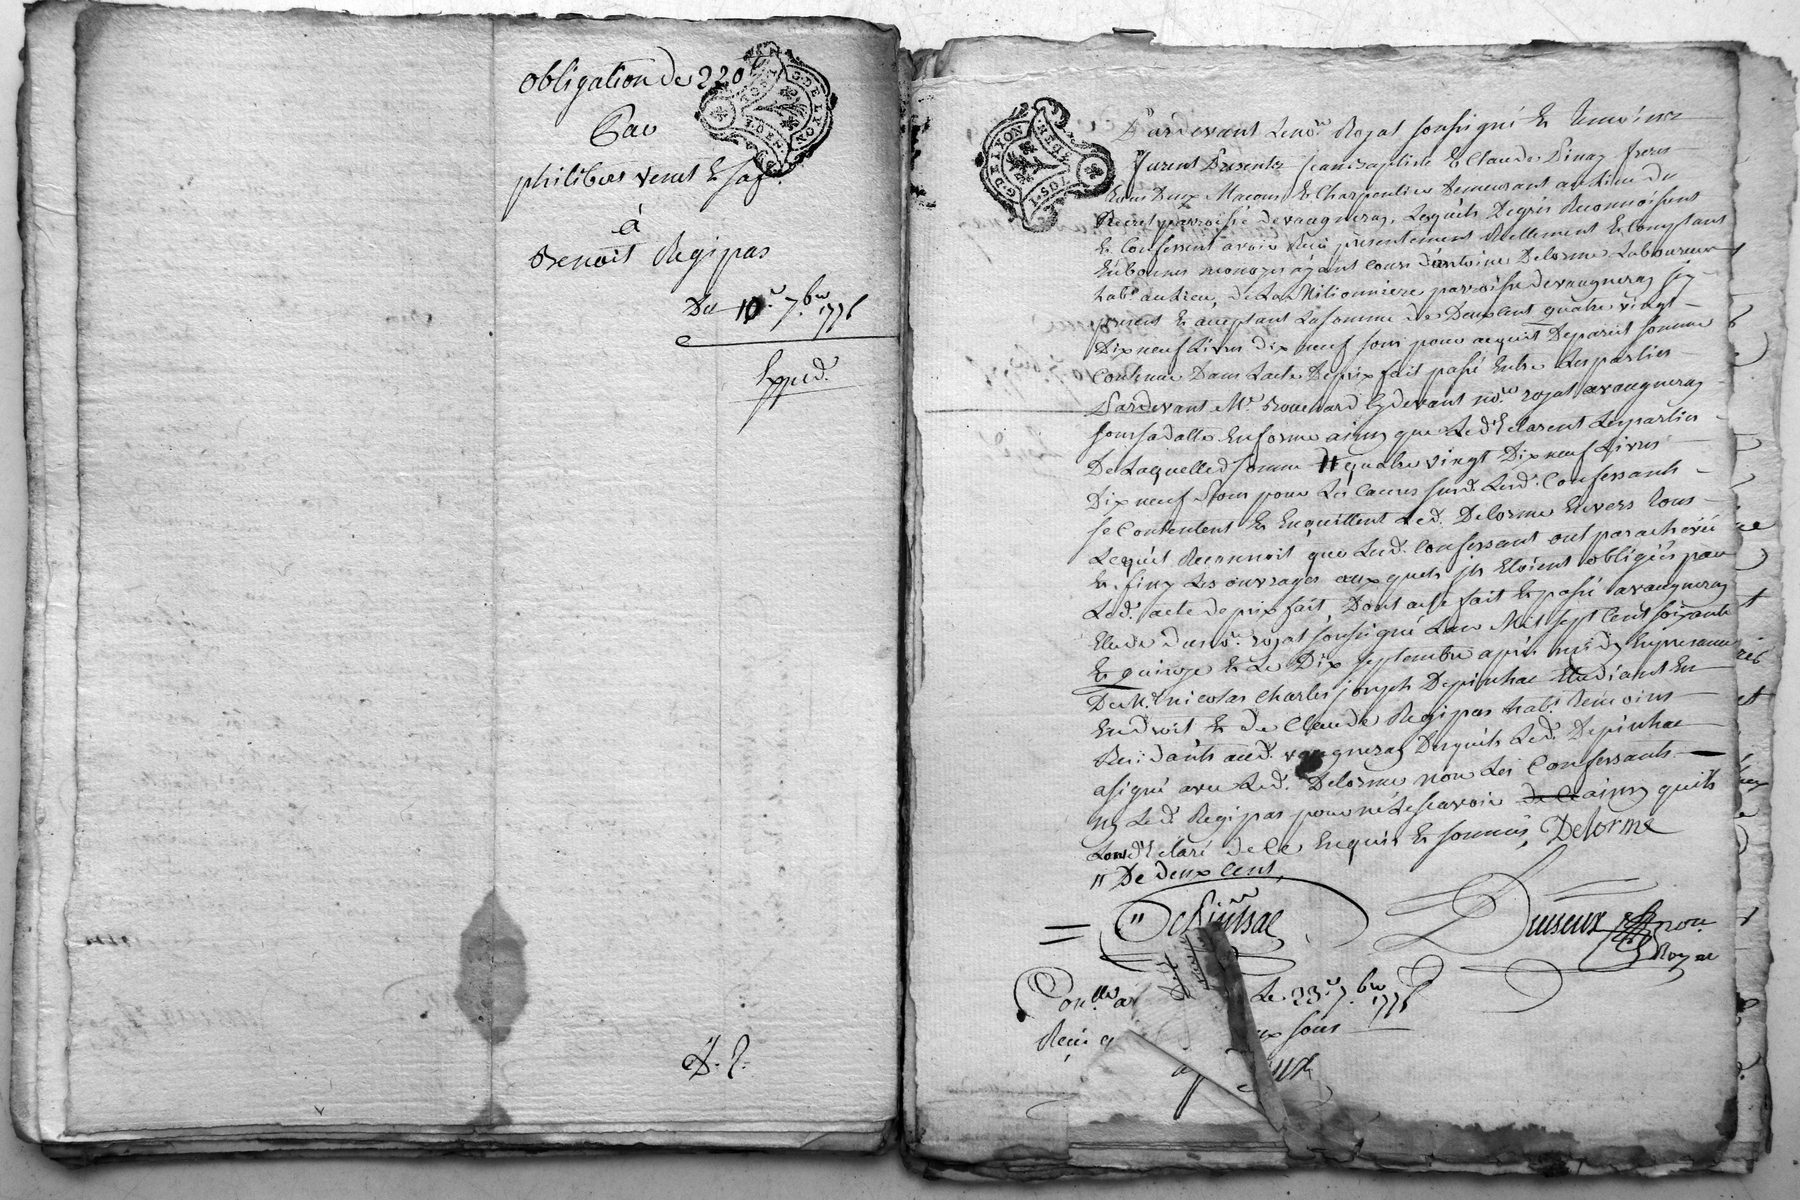 obligation de 220
Par
philibert venet &
à
Benoit Regipas
Du 10.e 7.bre 1775
Exped.
G. DE LYON
Pardevant Le no.re Royal soussigné Et temoins
furent Presents Jean Baptiste Et Claude Pinay freres
tous Deux Macons Et Charpentier Demeurant au Lieu du
Recret parroisse de vaugneray, Lesquels De gré Reconnoissent
Et Confessent avoir Reçu presentement Reellement Et Comptant
En bonnes monoyes ayant cours d'antoine Delorme Laboureur
hab.t au Lieu, de La Milionniere parroisse de vaugneray jcy
present Et acceptant La somme de Deux Cent quatre vingt
Dix neuf Livres Dix neuf sous pour acquit De pareil somme
Contenue Dans L'acte De prix fait passé Entre Les parties
Pardevant M.e Brouchard Cy devant no.re royal a vaugneray
sous sa datte En forme ainsy que Le declarent Les parties
De Laquelle d. somme " quatre vingt Dix neuf Livres
Dix neuf Sous pour Les Causes susd. Lesd. Confessants
se Contentent Et En quittent Led. Delorme Envers tous
Lequel Reconnoit que Lesd. Confessant ont parachevé
Et finy Les ouvrages auxquels jls Etoient obligées par
Led. acte de prix fait, Dont acte fait Et passé a vaugneray
Etude du no.re royal soussigné L'an Mil sept Cent soixante
Et quinze Et Le Dix septembre après midy En presence
De M.e nicolas Charles joseph Depinhac Etudiant En
En droit Et de Claude Regipas hab.t temoins
Residants aud. vaugneray Desquels Led. Depinhac
a signé avec Led. Delorme non Les Confessants
ny Led. Regipas pour ne Le scavoir de ce ainsy quils
L'ont déclaré de Ce Enquis Et sommés, Delorme
" De deux Cent,
Depinhac
Duseux no.re
Royal
Con.llé a Le 23.e 7.bre 1775
Reçu q sous